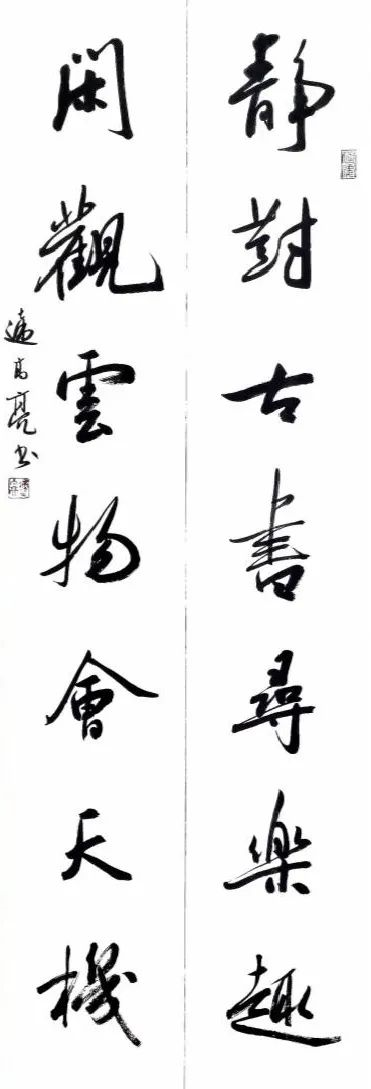 靜對古書尋樂趣
閑觀雲物會天機
遠高亮书